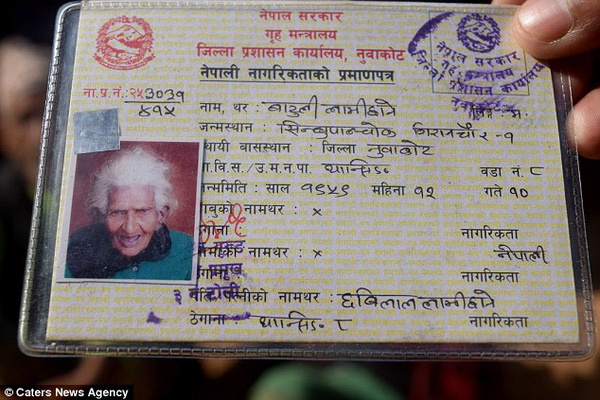 नेपाल सरकार
गृह मन्त्रालय
जिल्ला प्रशासन कार्यालय, नुवाकोट
नेपाली नागरिकताको प्रमाणपत्र
नेपाल सरकार
गृह मन्त्रालय
जिल्ला प्रशासन कार्यालय
नुवाकोट
ना.प्र.नं.
४१५
नाम, थर : बाटुली लामीछाने
जन्मस्थान : सिन्धुपाल्चोक
थायी बासस्थान : जिल्ला नुवाकोट
गा.बि.स./उ.म.न.पा. थानसिङ वडा नं. ८
जन्ममिति : साल १९५९ महिना १२ गते १०
बाबुको नामथर : ×
ठेगाना : नागरिकता
आमाको नामथर : × नेपाली
ठेगाना : नागरिकता
पति/पत्नीको नामथर : छविलाल लामीछाने
ठेगाना : थानसिङ ८ नागरिकता
© Caters News Agency